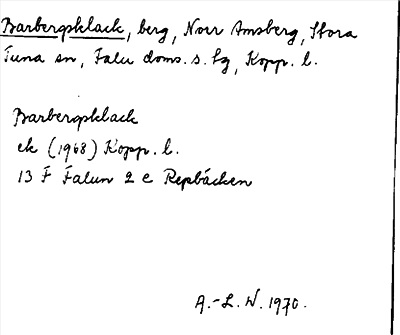 Barbergsklack, berg, Norr Amsberg, Stora
Tuna sn, Falu doms. s. lg, Kopp. l.
Barbergsklack
ek (1968) Kopp. l.
13 F Falun 2 e Repbäcken
A.-L. W. 1970.